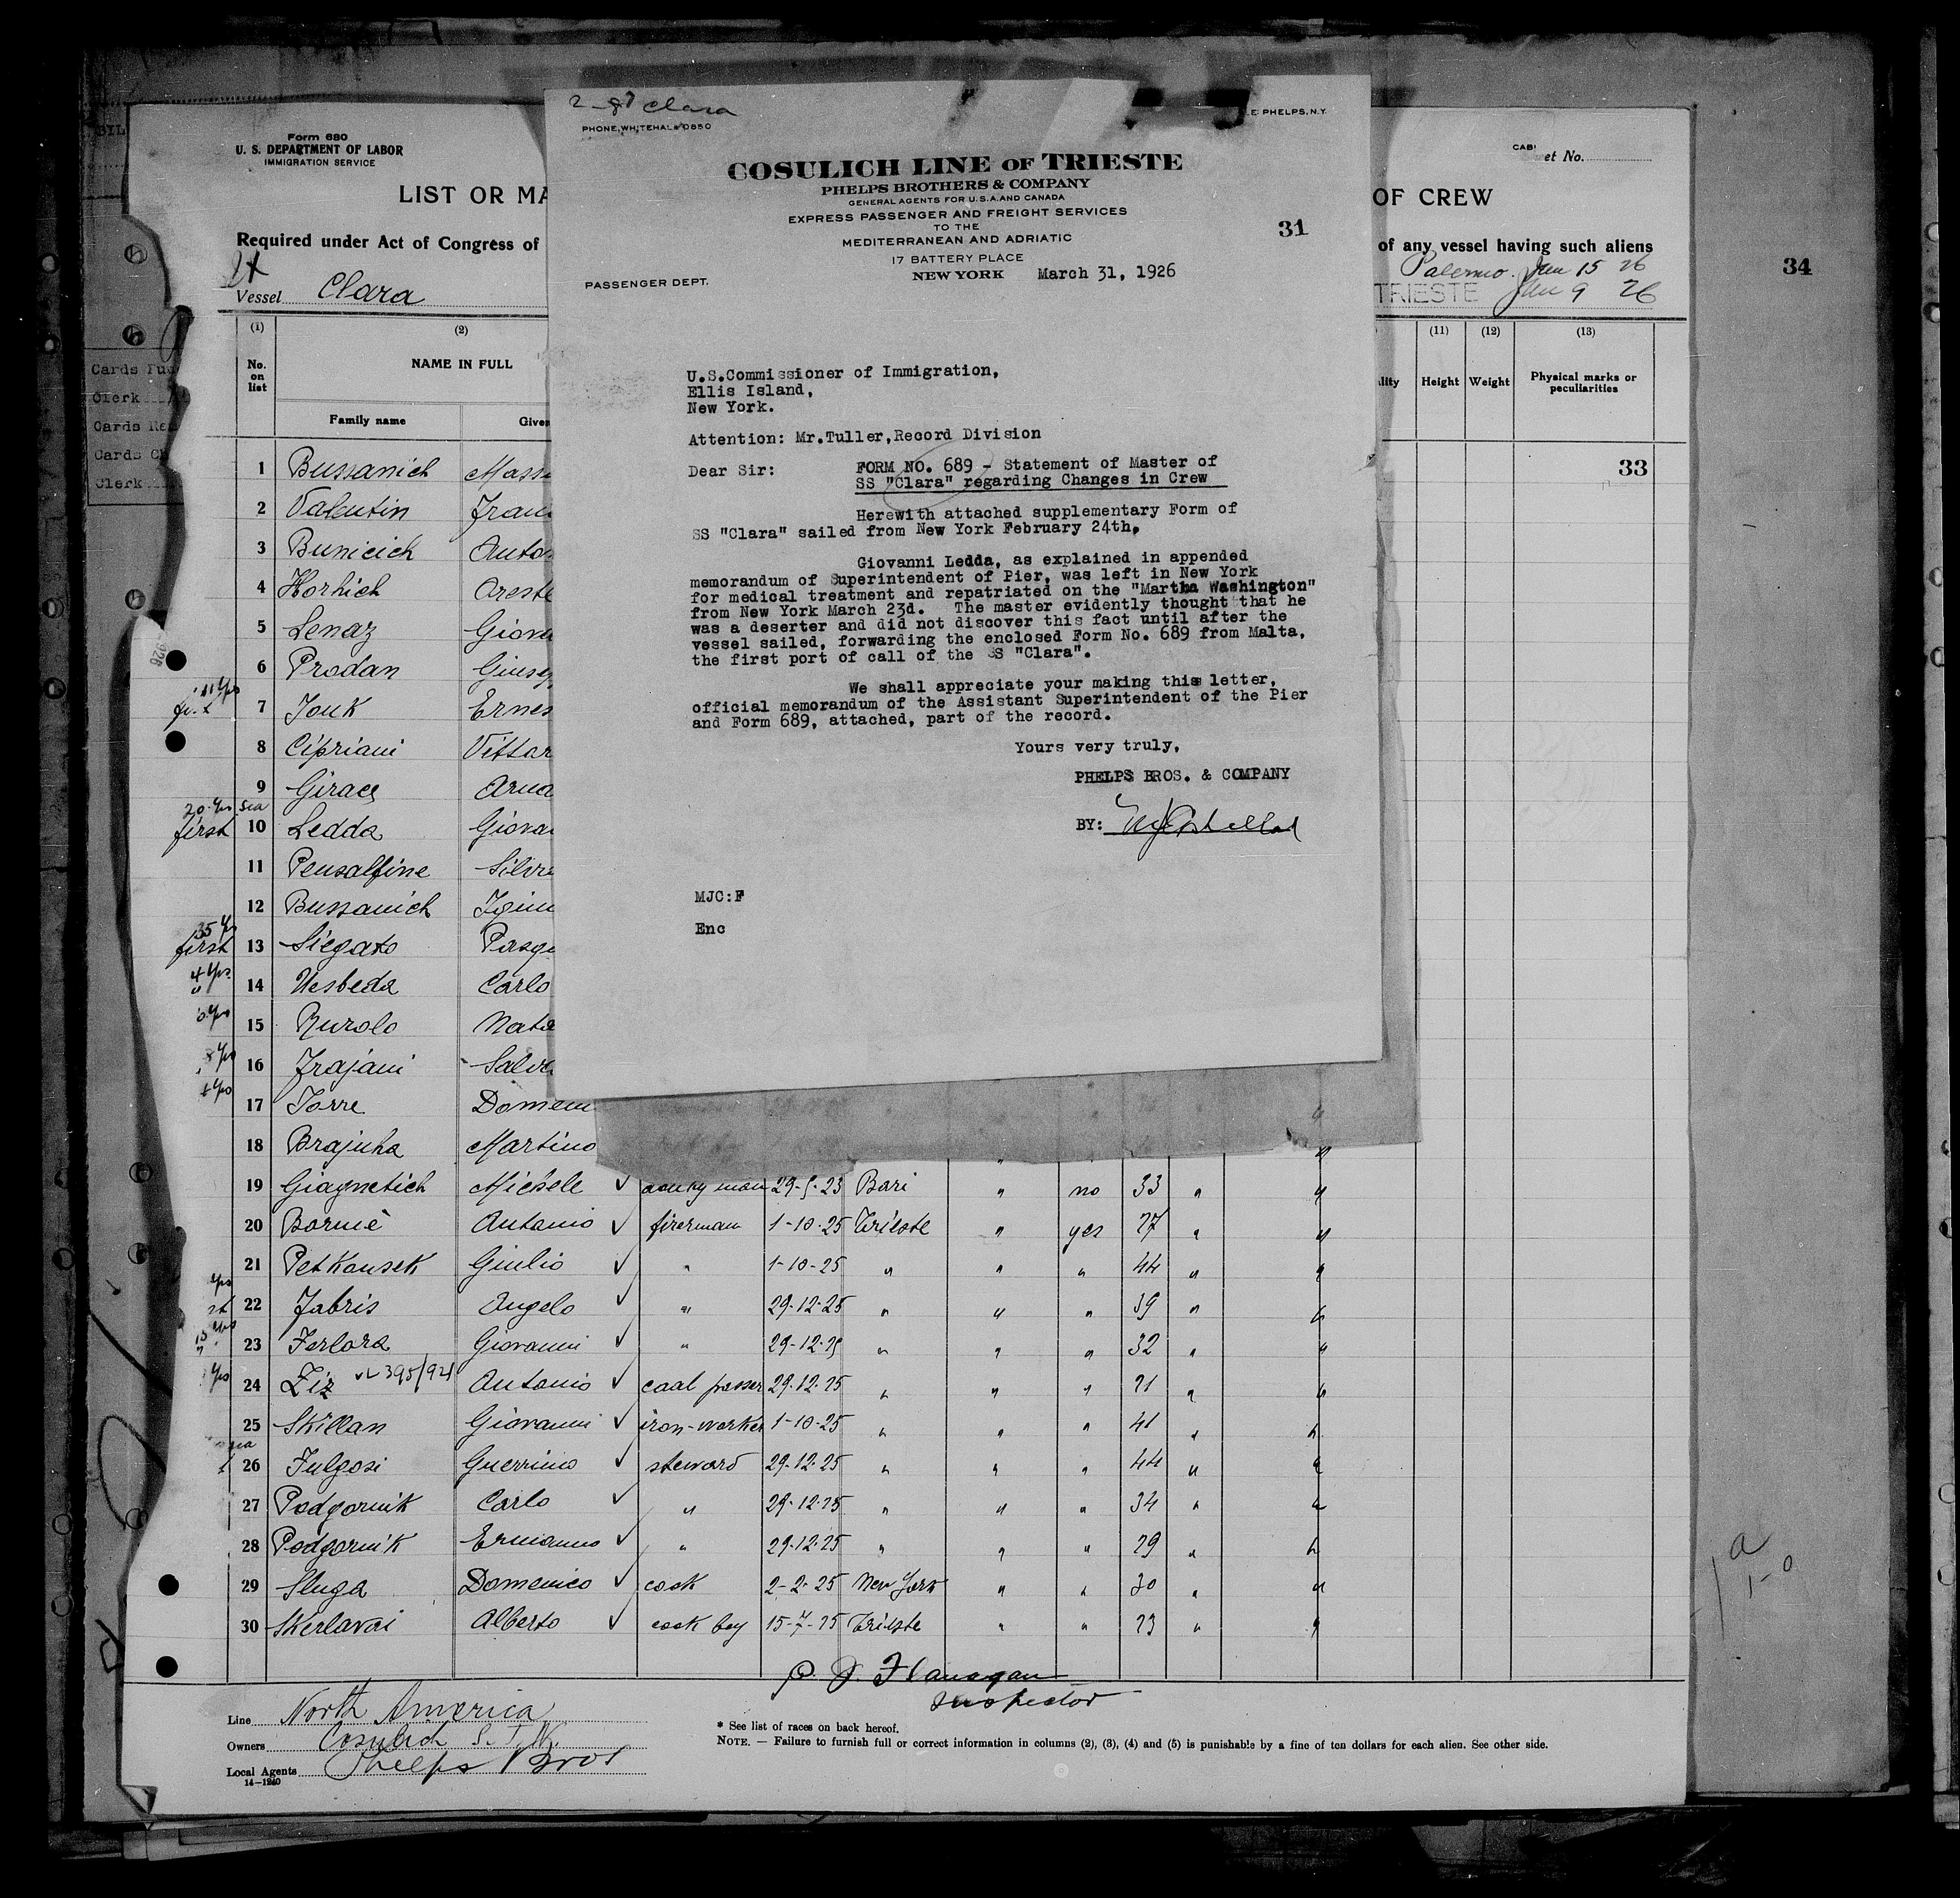 2-97 Clara
PHONE, WHITEHALL 0850
PHELPS, N.Y.
COSULICH LINE OF TRIESTE
PHELPS BROTHERS & COMPANY
GENERAL AGENTS FOR U.S.A. AND CANADA
EXPRESS PASSENGER AND FREIGHT SERVICES
TO THE
MEDITERRANEAN AND ADRIATIC
17 BATTERY PLACE
NEW YORK March 31, 1926
PASSENGER DEPT.
31
U.S.Commissioner of Immigration,
Ellis Island,
New York.
Attention: Mr.Tuller,Record Division
Dear Sir: FORM NO. 689 - Statement of Master of
SS "Clara" regarding Changes in Crew
Herewith attached supplementary Form of
SS "Clara" sailed from New York February 24th.
Giovanni Ledda, as explained in appended
memorandum of Superintendent of Pier, was left in New York
for medical treatment and repatriated on the "Martha Washington"
from New York March 23d. The master evidently thought that he
was a deserter and did not discover this fact until after the
vessel sailed, forwarding the enclosed Form No. 689 from Malta,
the first port of call of the SS "Clara".
We shall appreciate your making this letter,
official memorandum of the Assistant Superintendent of the Pier
and Form 689, attached, part of the record.
Yours very truly,
PHELPS BROS. & COMPANY
BY:
MJC:F
Enc
Form 680
U. S. DEPARTMENT OF LABOR
IMMIGRATION SERVICE
et No.
LIST OR MA
OF CREW
Required under Act of Congress of
of any vessel having such aliens
Vessel Clara
Palermo. Jan 15 26
TRIESTE Jan 9 26
34
33
(1) (2) (11) (12) (13)
No. on list NAME IN FULL Height Weight Physical marks or peculiarities
Family name Given
Cards
Clerk
Cards
Cards
Clerk
1 Bussanich Mass
2 Valentin Fran
3 Bunicich Anto
4 Horhich Oreste
5 Lenaz Giova
6 Prodan Giusep
7 Jouk Ernes
8 Cipriani Vittor
9 Girace Arna
20 Yrs sea
first 10 Ledda Giova
11 Pensalfine Silve
12 Bussanich Igin
35 Yrs
first 13 Siegato Pasqu
4 Yrs
14 Uesbeda Carlo
15 Rurolo Nata
16 Trajani Salva
17 Torre Domeni
18 Brajuha Martino
19 Giagnetich Michele ✓ donkey man 29-5-23 Bari " no 33 " "
20 Bormè Antonio ✓ fireman 1-10-25 Trieste " yes 27 " "
21 Petkousek Giulio ✓ " 1-10-25 " " " 44 " "
22 Fabris Angelo ✓ " 29-12-25 " " " 39 " "
23 Ferlora Giovanni ✓ " 29-12-25 " " " 32 " "
24 Ziz Antonio ✓ coal passer 29-12-25 " " " 21 " "
25 Skillan Giovanni ✓ iron-worker 1-10-25 " " " 41 " "
26 Fulgosi Guerrino ✓ steward 29-12-25 " " " 44 " "
27 Podgornik Carlo ✓ " 29-12-25 " " " 34 " "
28 Podgornik Ermanno ✓ " 29-12-25 " " " 29 " "
29 Sluga Domenico ✓ cook 2-2-25 New York " " 30 " "
30 Skerlavai Alberto ✓ cook boy 15-7-25 Trieste " " 23 " "
P. J. Flanagan
Inspector
Line North America
Owners Cosulich S. T. N.
Local Agents Phelps Bros
14-1240
* See list of races on back hereof.
NOTE. — Failure to furnish full or correct information in columns (2), (3), (4) and (5) is punishable by a fine of ten dollars for each alien. See other side.